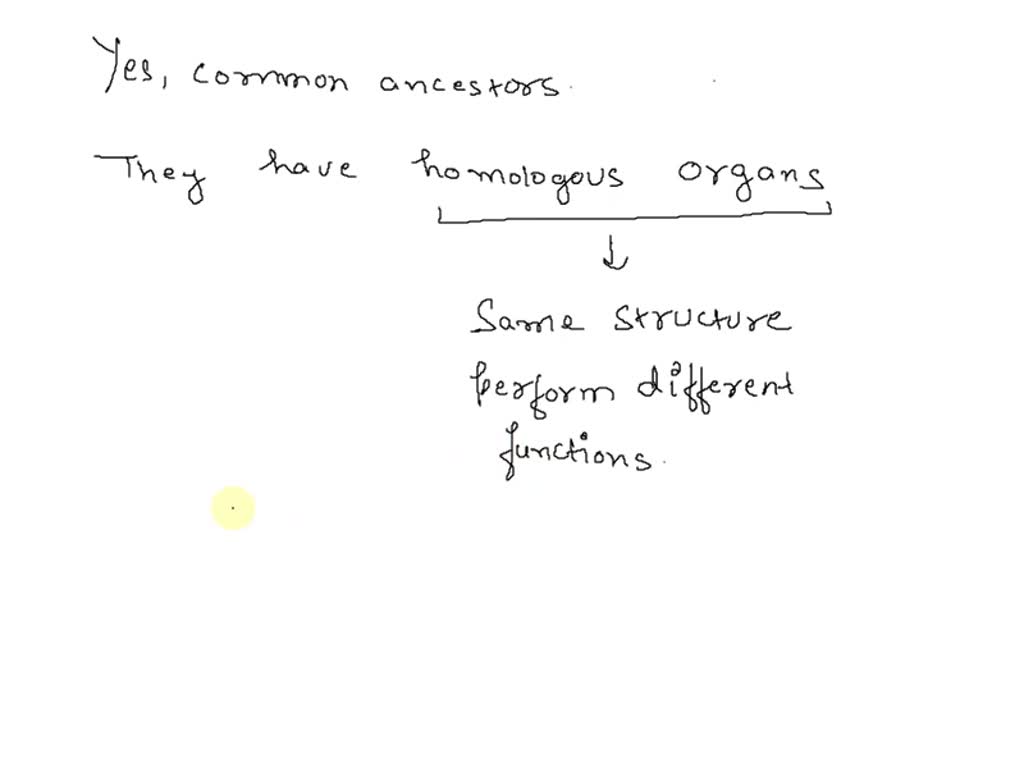 Yes, common ancestors.
They have homologous organs
↓
Same structure
perform different
functions.